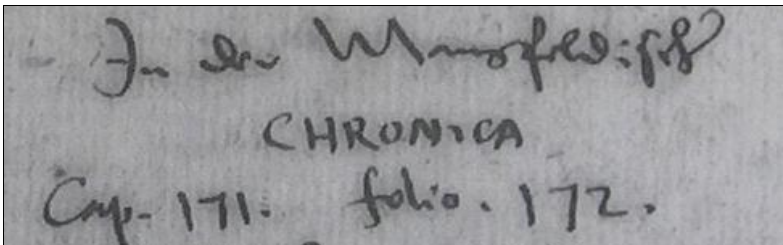 In der Mansfeldisch
CHRONICA
Cap. 171. folio. 172.